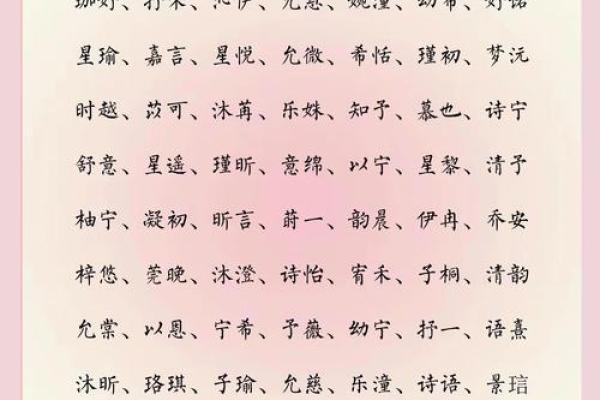 珈妤、抒禾、沁伊、允慈、婉潼、幼希、妤诺
星瑜、嘉言、星悦、允微、希恬、瑾初、梦沅
时越、苡可、沐苒、乐姝、知予、慕也、诗宁
舒意、星遥、瑾昕、意绵、以宁、星黎、清予
柚宁、凝初、昕言、莳一、韵晨、伊冉、乔安
梓悠、莞晚、沐澄、诗怡、宥禾、子桐、清韵
允棠、以恩、宁希、予薇、幼宁、抒一、语熹
沐昕、珞琪、子瑜、允慈、乐潼、诗语、景琂